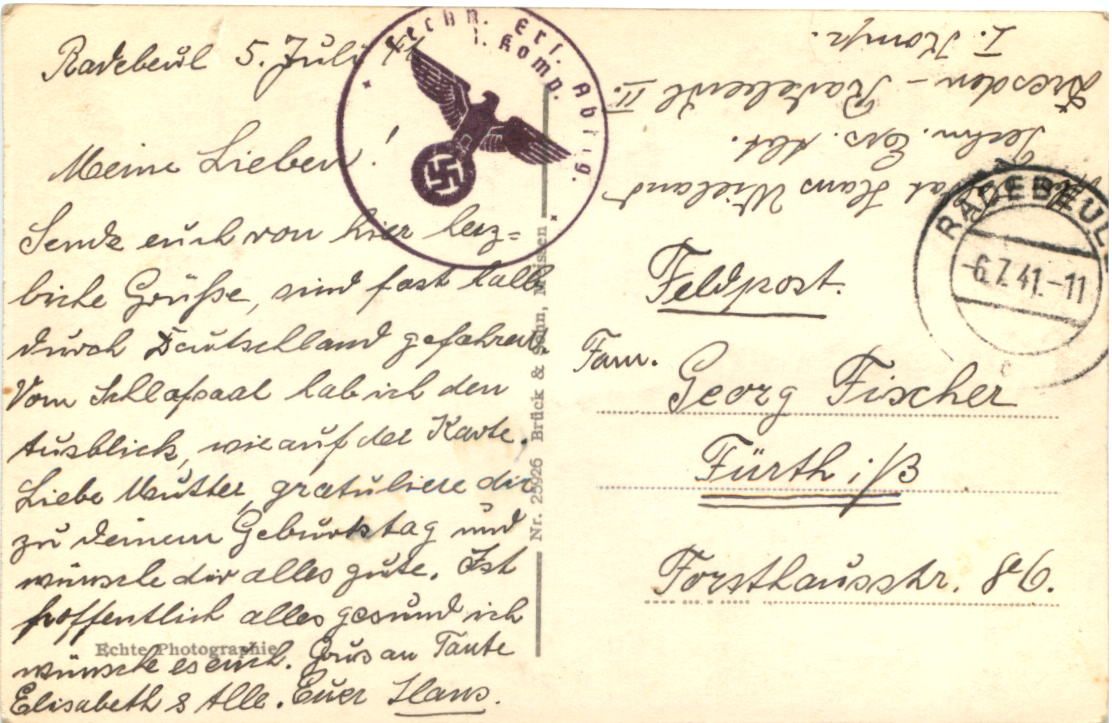 Radebeul 5. Juli 41
Meine Lieben!
Sende euch von hier herz=
liche Grüße, sind fast halb
durch Deutschland gefahren.
Vom Schlafsaal hab ich den
Ausblick, wie auf der Karte.
Liebe Mutter, gratuliere dir
zu deinem Geburtstag und
wünsche dir alles gute. Ist
hoffentlich alles gesund ich
wünsche es euch. Grus an Tante
Elisabeth & Alle. Euer Hans.
Echte Photographie
Techn. Ers. Abtlg.
1. Komp.
Nr. 25926 Brück & Sohn, Meissen
Soldat Hans Wieland
Techn. Ers. Abt.
Dresden – Radebeul II.
I. Komp.
RADEBEUL
-6.7.41.-11
c
Feldpost.
Fam. Georg Fischer
Fürth i/B
Forsthausstr. 86.